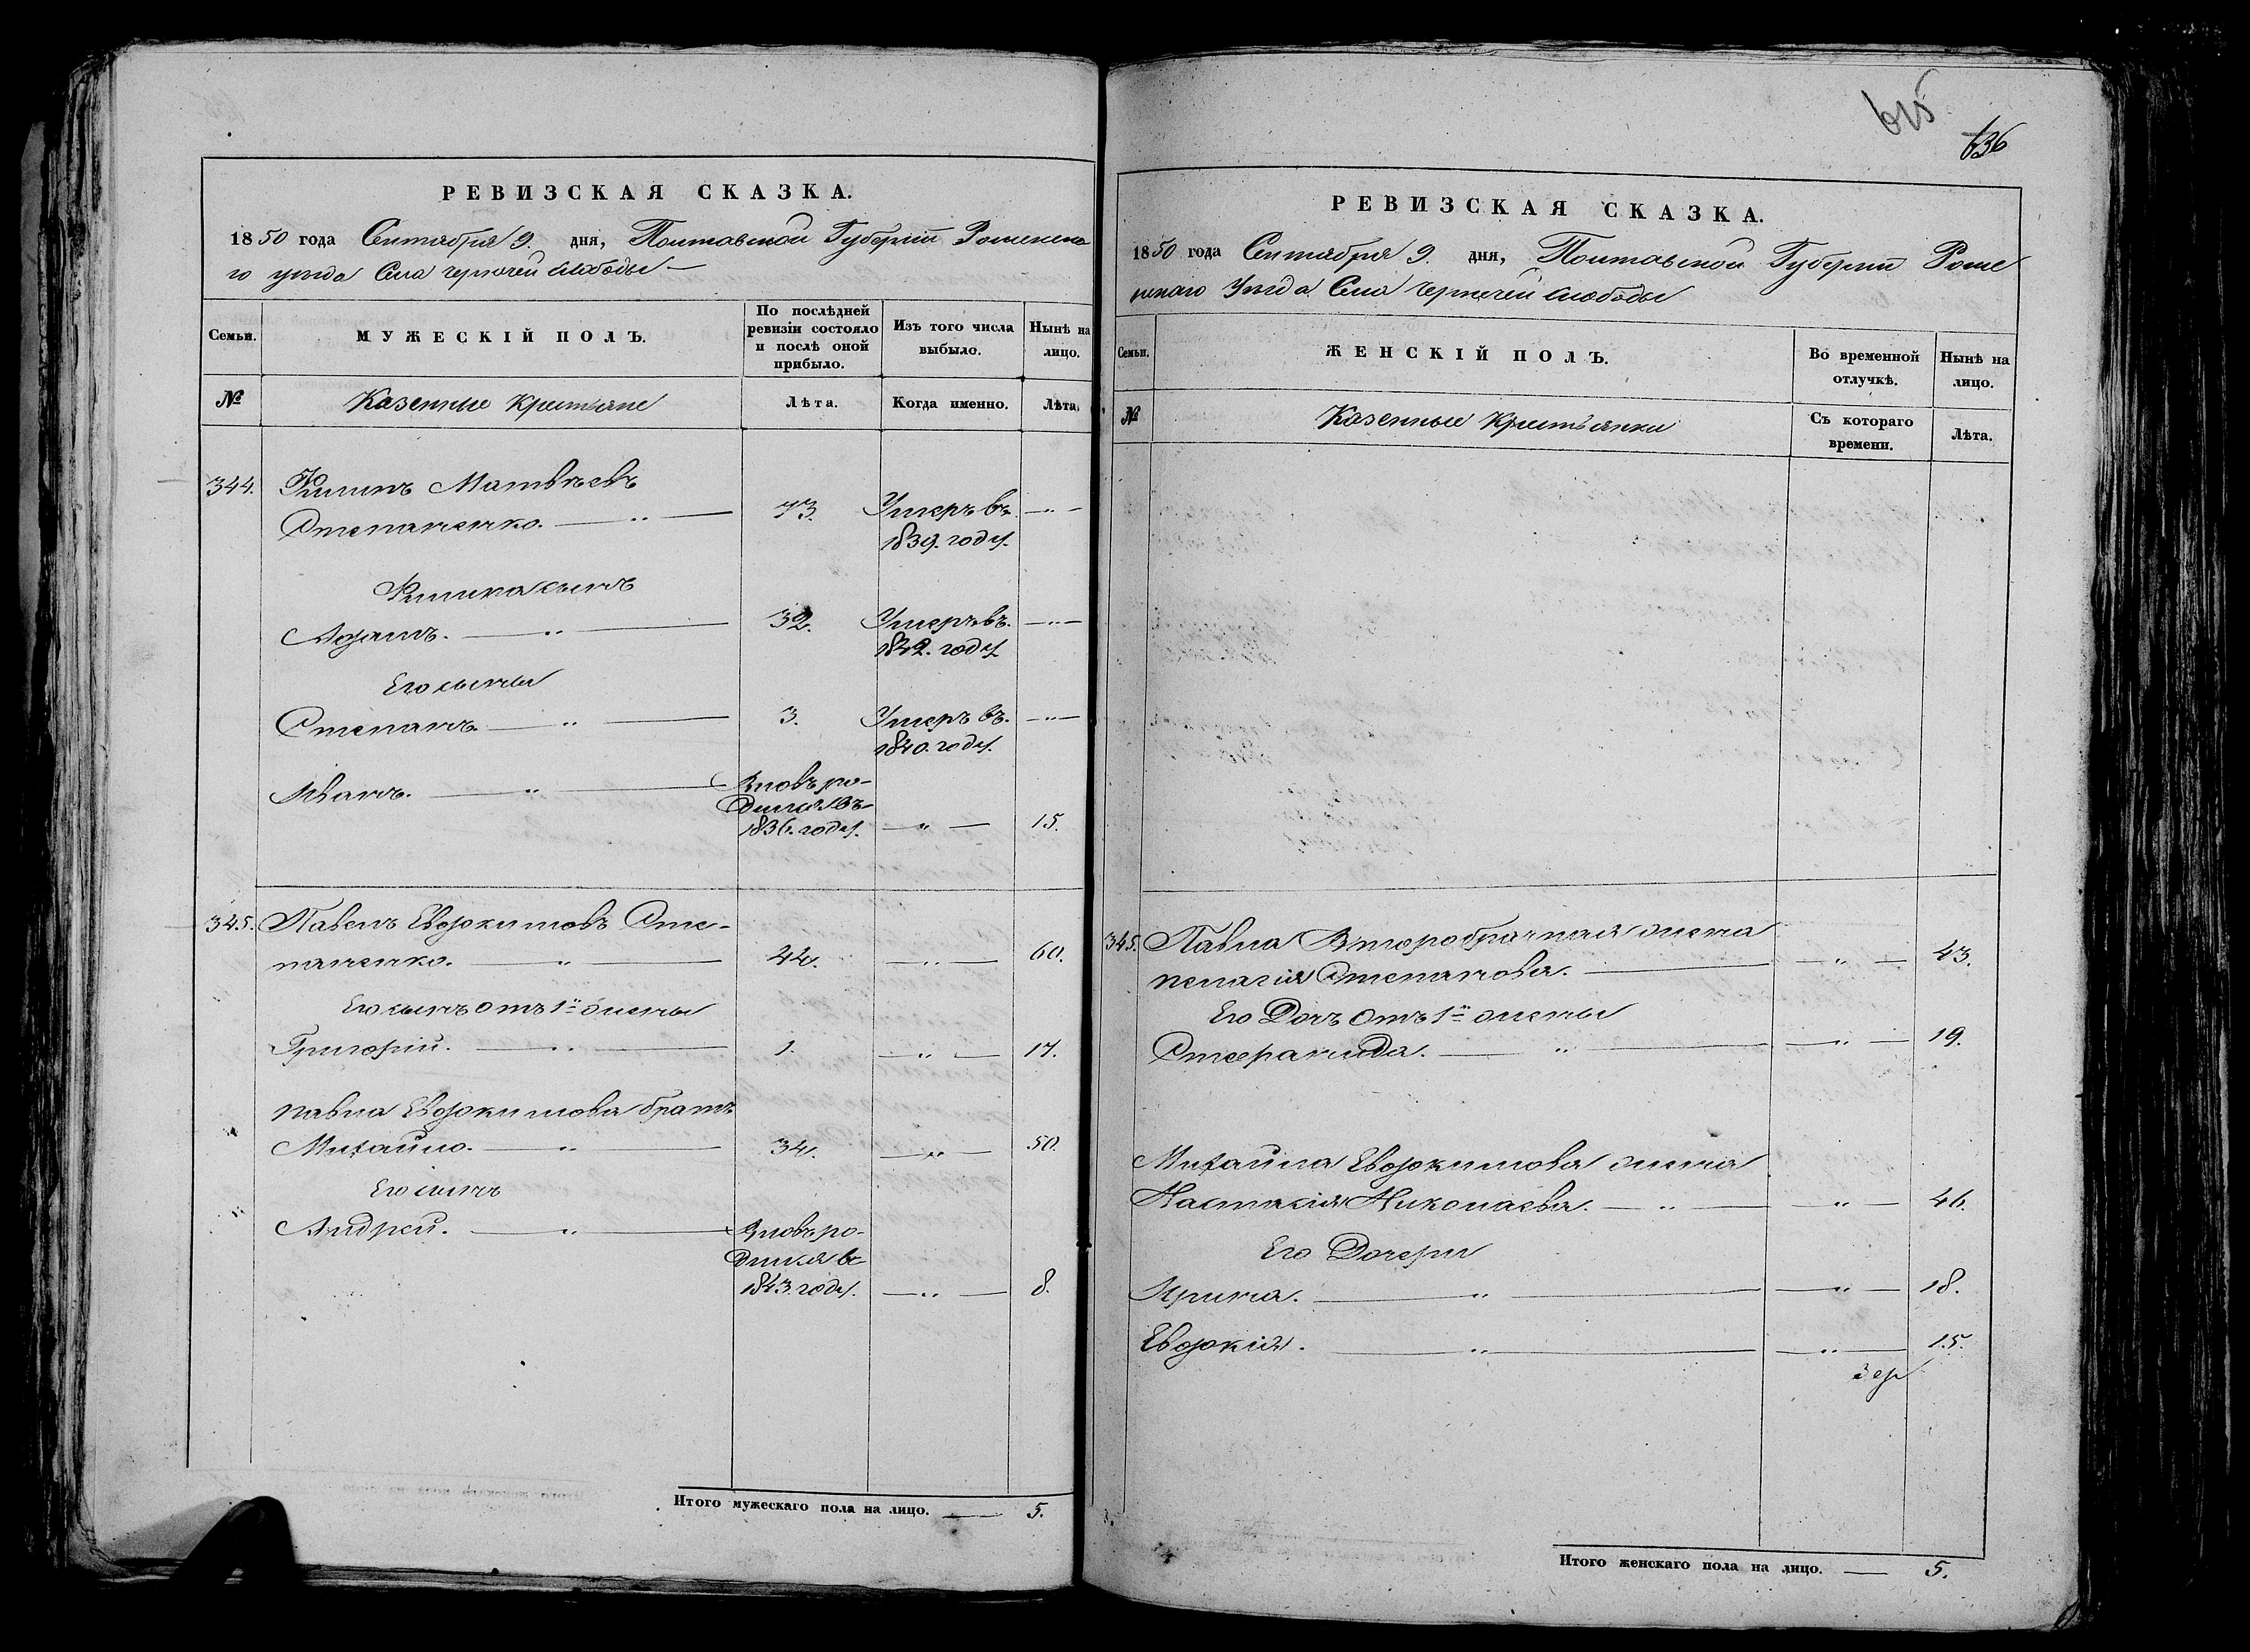 РЕВИЗСКАЯ СКАЗКА.
1850 года Сентября 9. дня, Полтавской Губерніи Роменска
го уезда Села Чернечей Слободы
Семьи.
МУЖЕСКІЙ ПОЛЪ.
По послѣдней
ревизіи состояло
и послѣ оной
прибыло.
Изъ того числа
выбыло.
Нынѣ на
лицо.
№
Казенные Крестьяне
Лѣта.
Когда именно.
Лѣта.
344. Филипъ Матвѣевъ
Степаненко. — " — 73. Умеръ въ — " —
1839. году.
Филипа сынъ
Адамъ. — " — 32. Умеръ въ. — " —
1842. году
Его сыны
Степанъ. — " — 3. Умеръ въ. — " —
1840. году.
Иванъ. — " — Вновь ро-
дился въ
1836. году. — " — 15.
345. Павелъ Евдокимовъ Сте-
паненко. — " — 44. — " — 60.
Его сынъ отъ 1й жены
Григорій. — " — 1. — " — 17.
Павла Евдокимова братъ
Михайло. — " — 34. — " — 50.
Его сынъ
Андрей. — " — Вновь ро-
дился въ
1843. году. — " — 8.
Итого мужескаго пола на лицо. — 5.
615
636
РЕВИЗСКАЯ СКАЗКА.
1850 года Сентября 9. дня, Полтавской Губерніи Роме
нскаго Уезда Села Чернечей Слободы
Семьи.
ЖЕНСКІЙ ПОЛЪ.
Во временной
отлучкѣ.
Нынѣ на
лицо.
№
Казенные Крестьянки
Съ котораго
времени.
Лѣта.
345. Павла Второбрачная жена
Пелагія Степанова. — — " — 43.
Его Дочь отъ 1й жены
Степанида. — " — — " — 19.
Михайла Евдокимова жена
Настасія Николаева. — " — — " — 46.
Его Дочери
Ирина. — " — — " — 18.
Евдокія. — " — — " — 15.
Итого женскаго пола на лицо. — 5.